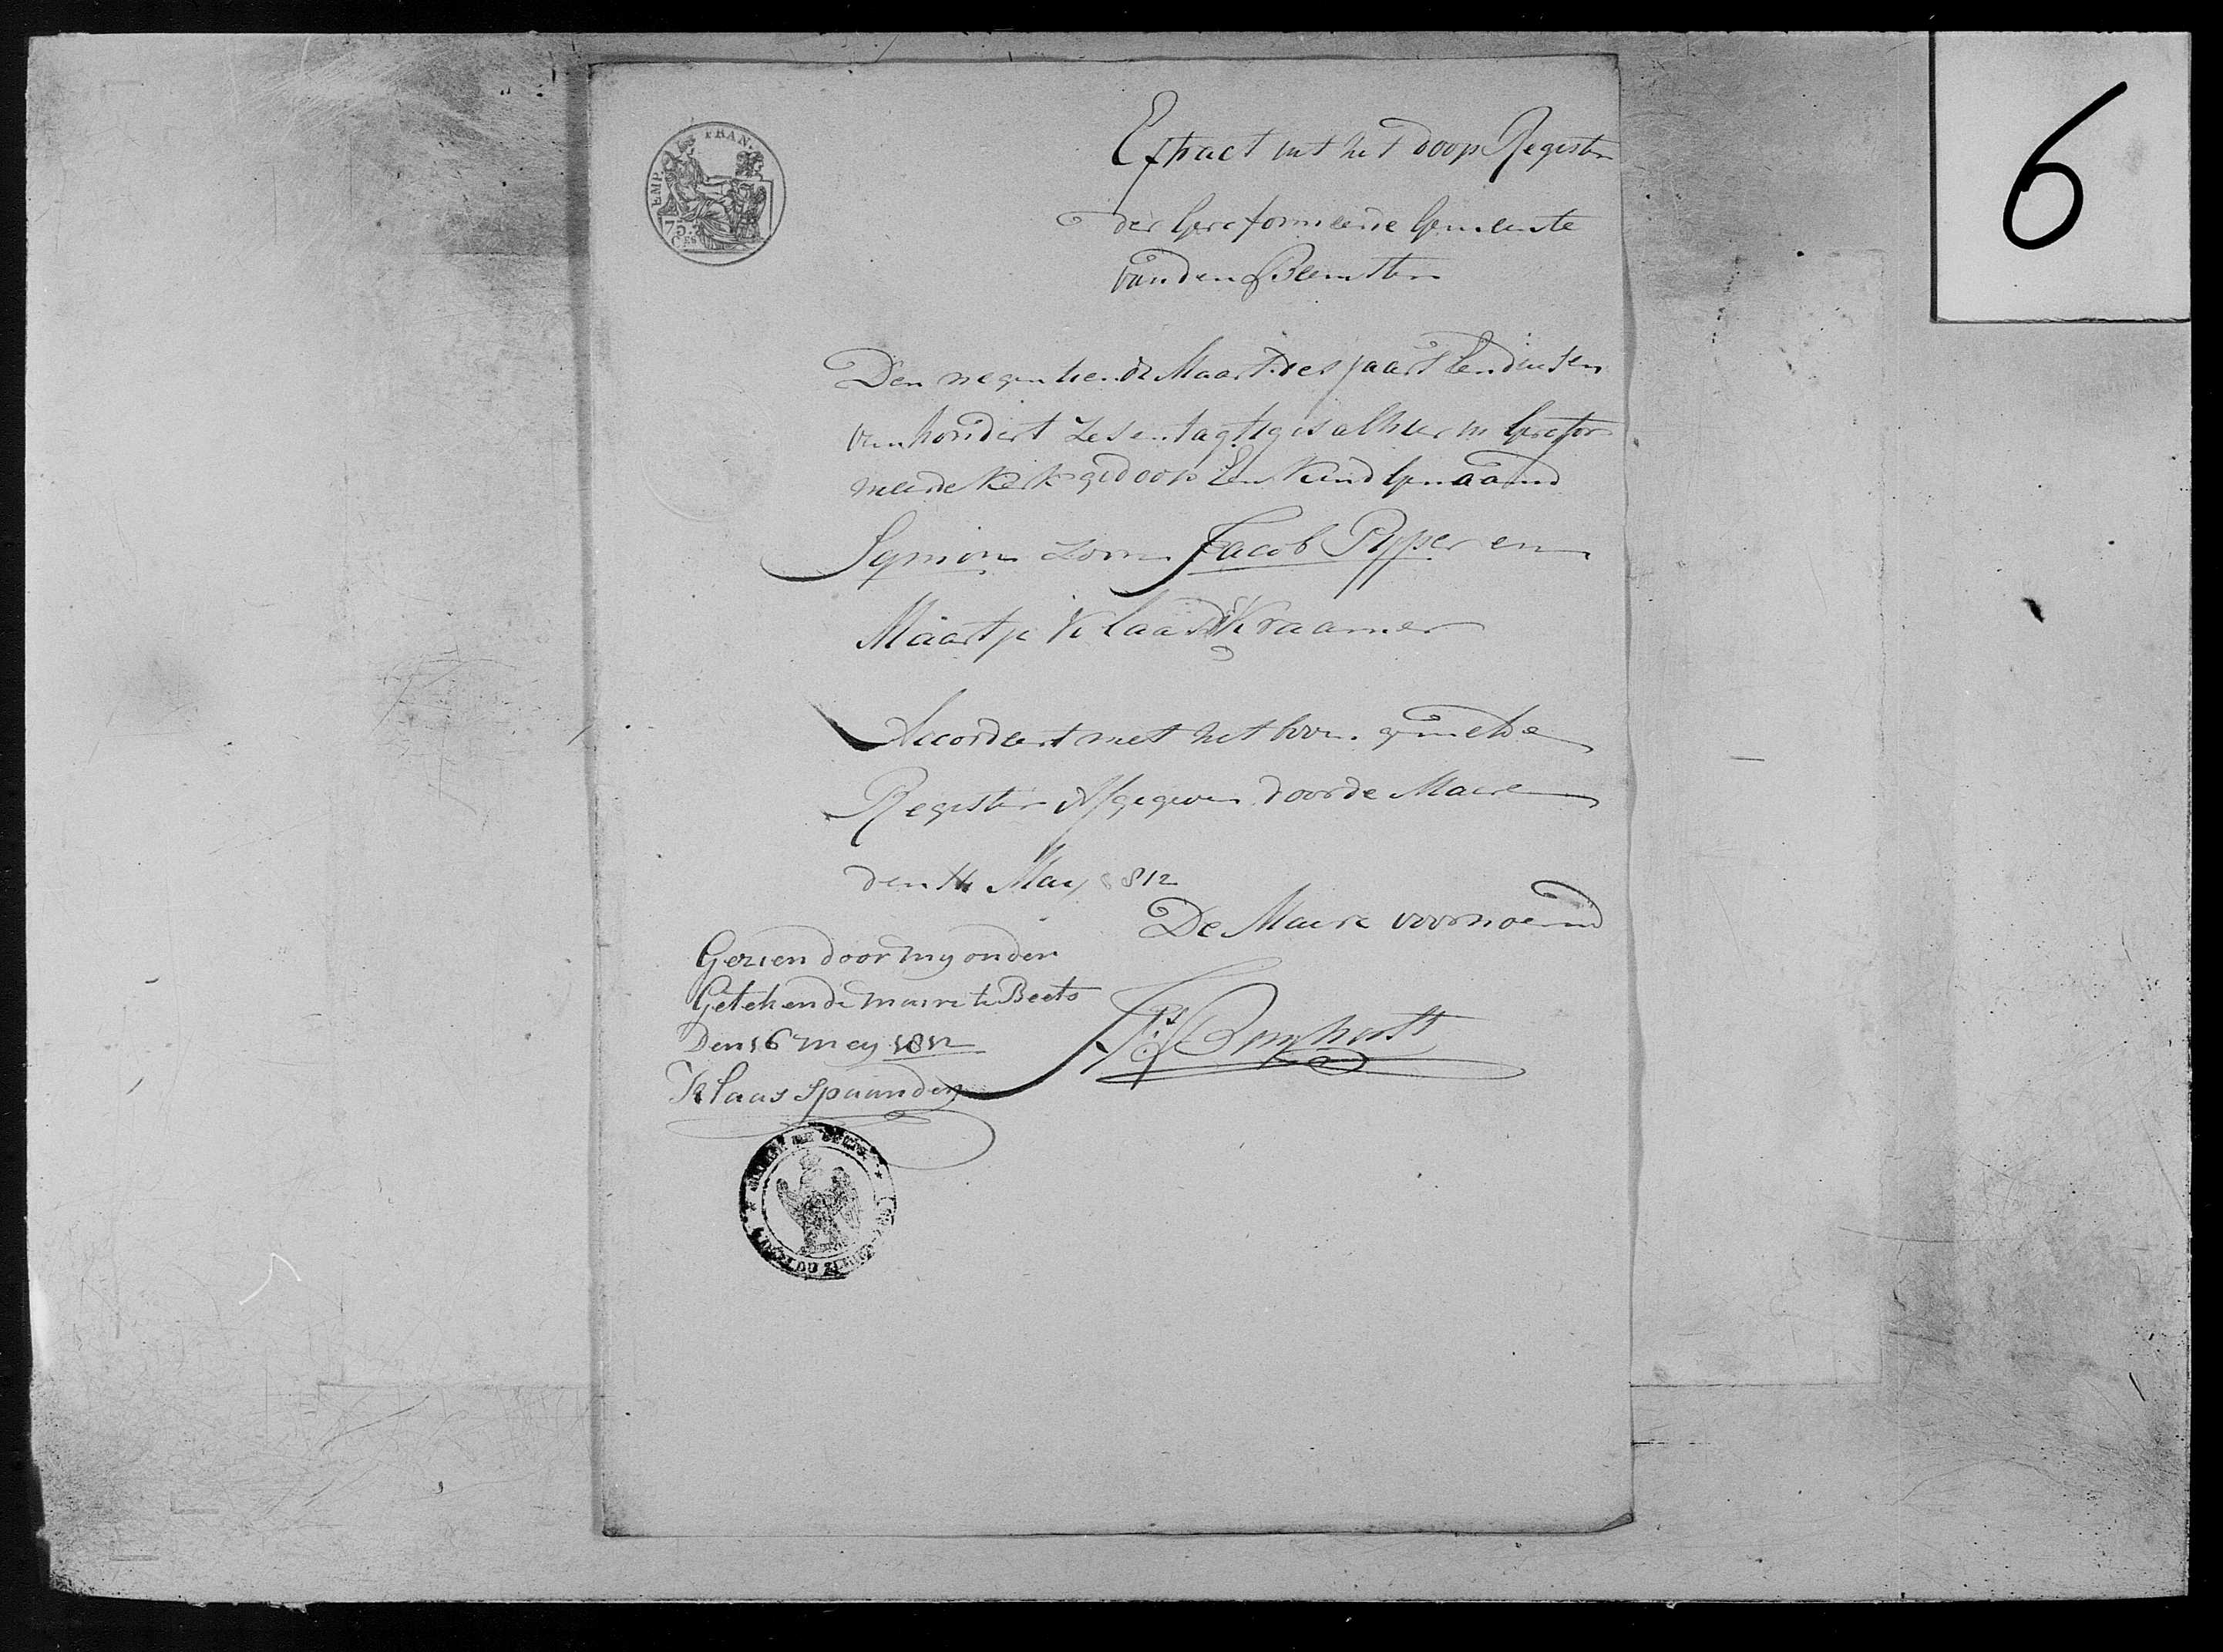 6
EMP. FRAN.
75.
Ces
Extract uit het doop Register
der Gereformeerde Gemeente
van den Beemster
Den negentiende Maart des jaars Een duisen
hondert Zes en tagtig is alhier in Gerefor
meerde Kerk gedoop Een Kind Genaamd
Symon Zoon Jacob Pijper en
Maartje Klaas Kraamer
Accordeert met het boven gemelde
Register Afgegeven door de Maire
den 14 May 1812
De Maire voornoemd
Gezien door my onder
Getekende maire te Beets
Den 16 mey 1812
Klaas Spaander